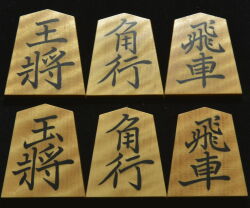 王將 角行 飛車
玉將 角行 飛車